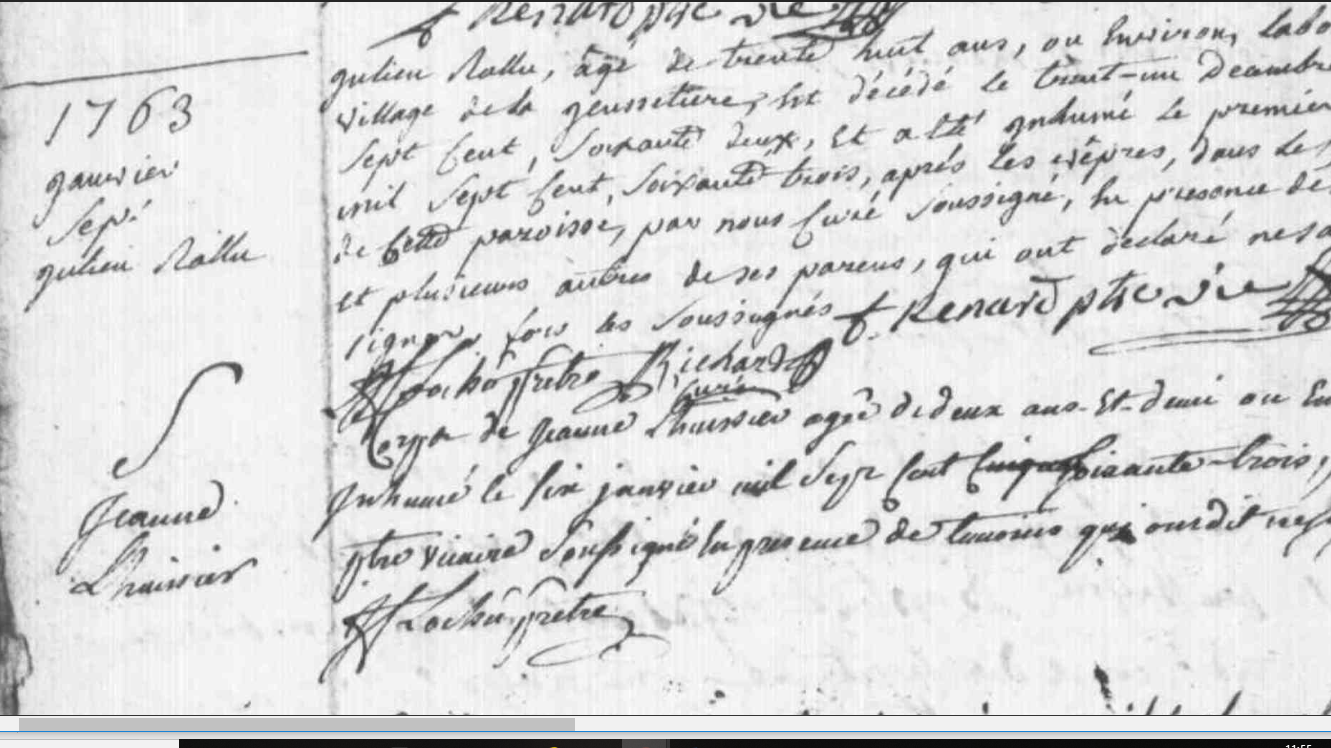 f Renard ptre vic
1763
janvier
sepr
julien Rallu
julien Rallu, âgé de trente huit ans, ou Environ, labo
village de la jeussetiere, Est décédé le trent-un decembre
sept Cent, soixante deux, Et a Eté jnhumé le premier
mil sept Cent, soixante trois, aprés les vêpres, dans le
de Cette paroisse, par nous Curé soussigné, En presence de
et plusieurs autres de ses parens, qui ont declaré ne sa
signer, fors les soussignés f. Renard ptre vic
Lochu prêtre Richard
Curé
S
Jeanne
Lhuissier
Corps de Jeanne Lhuissier agée de deux ans-Et-demi ou En
Jnhumé le six janvier mil Sept Cent soixante-trois,
ptre vicaire Soussigné En presence de temoins qui ont dit ne
Lochu prêtre